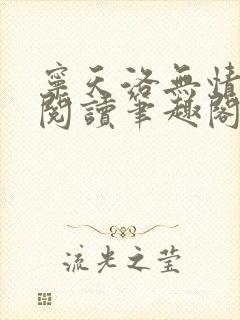 寧天洛無情
閱讀筆趣閣
流光之莹